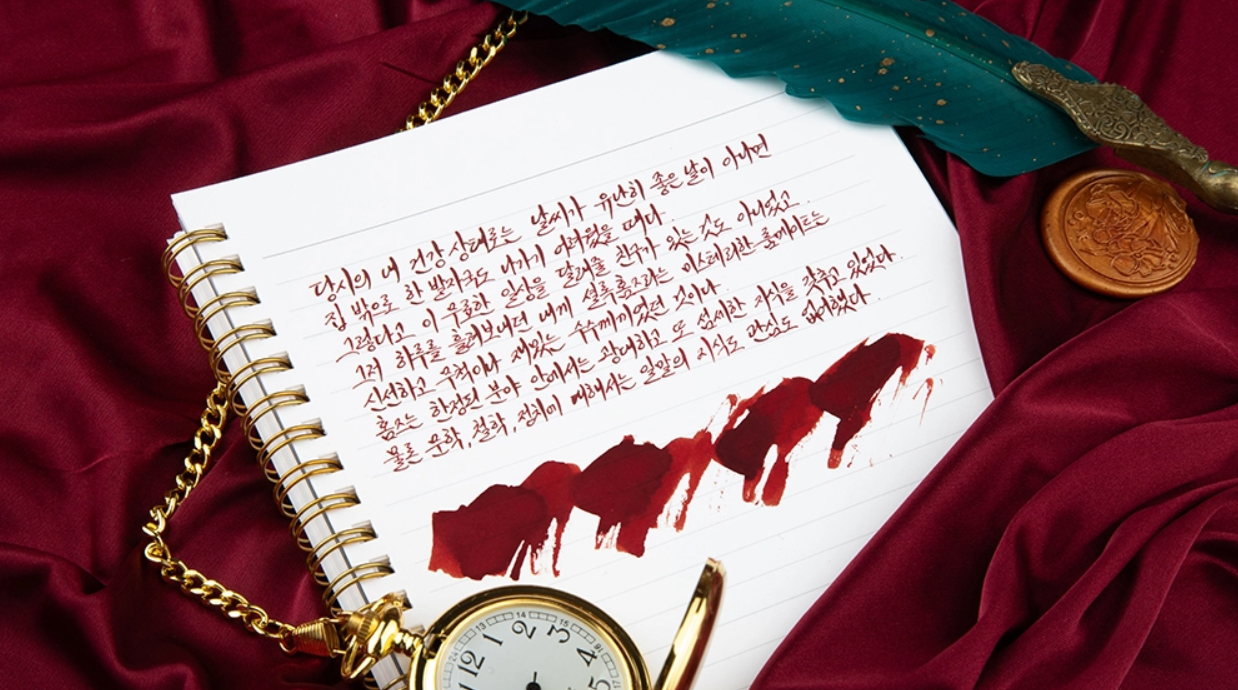 당시의 내 건강 상태로는 날씨가 유난히 좋은 날이 아니면
집 밖으로 한 발자국도 나가기 어려웠을 때다.
그렇다고 이 무료한 일상을 달래줄 친구가 있는 것도 아니었고.
그저 하루를 흘려보내던 내게 셜록홈즈라는 미스테리한 룸메이트는
신선하고 무척이나 재밌는 수수께끼였던 것이다.
홈즈는 한정된 분야 안에서는 광대하고 또 섬세한 지식을 갖추고 있었다.
물론 문학, 철학, 정치에 대해서는 일말의 지식도 관심도 없어했다.
12 1 2 3 4 5
24 13 14 15 16